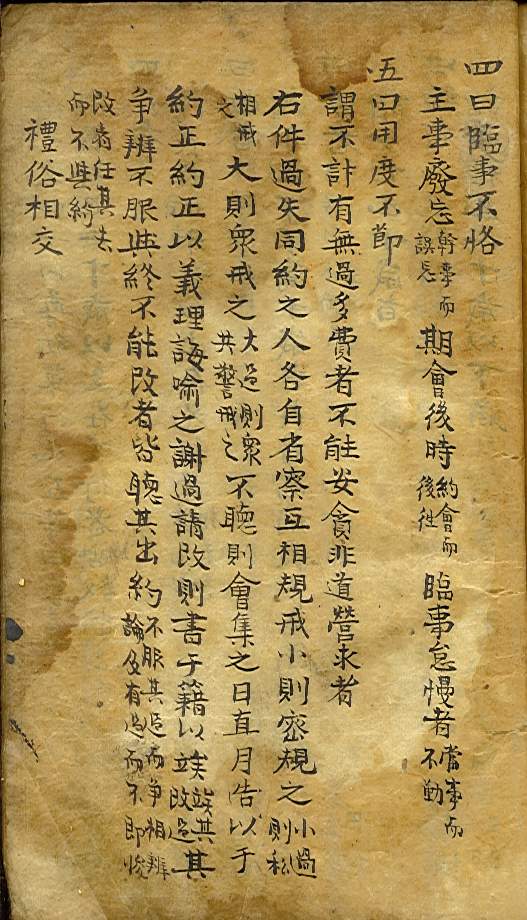 四曰臨事不恪
主事廢忘幹事而誤忘期會後時約會而後徃臨事怠慢者當事而不勤
五曰用度不節
謂不計有無過多費者不能安貧非道營求者
右件過失同約之人各自省察互相規戒小則密規之小過則私
相戒之大則衆戒之大過則衆共警戒之不聽則會集之日直月告以于
約正約正以義理誨喻之謝過請改則書于籍以竢竢其改過其
争辨不服與終不能改者皆聽其出約不服其過而争相辨論及有過而不即悛
改者任其去而不與約
禮俗相交